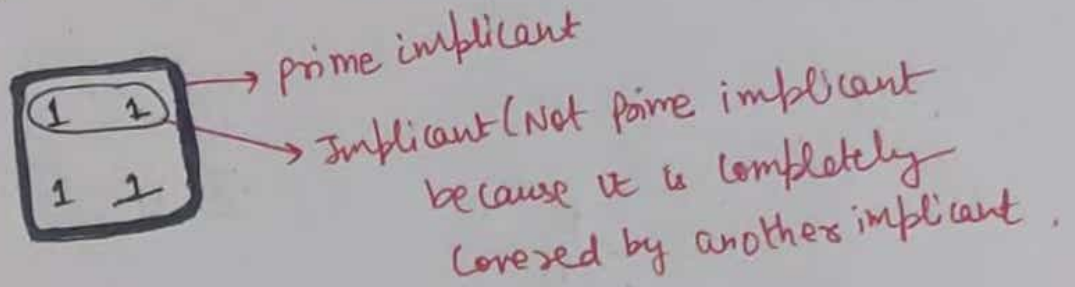 prime implicant
1 1
Implicant (Not Prime implicant
1 1
because it is completely
covered by another implicant.